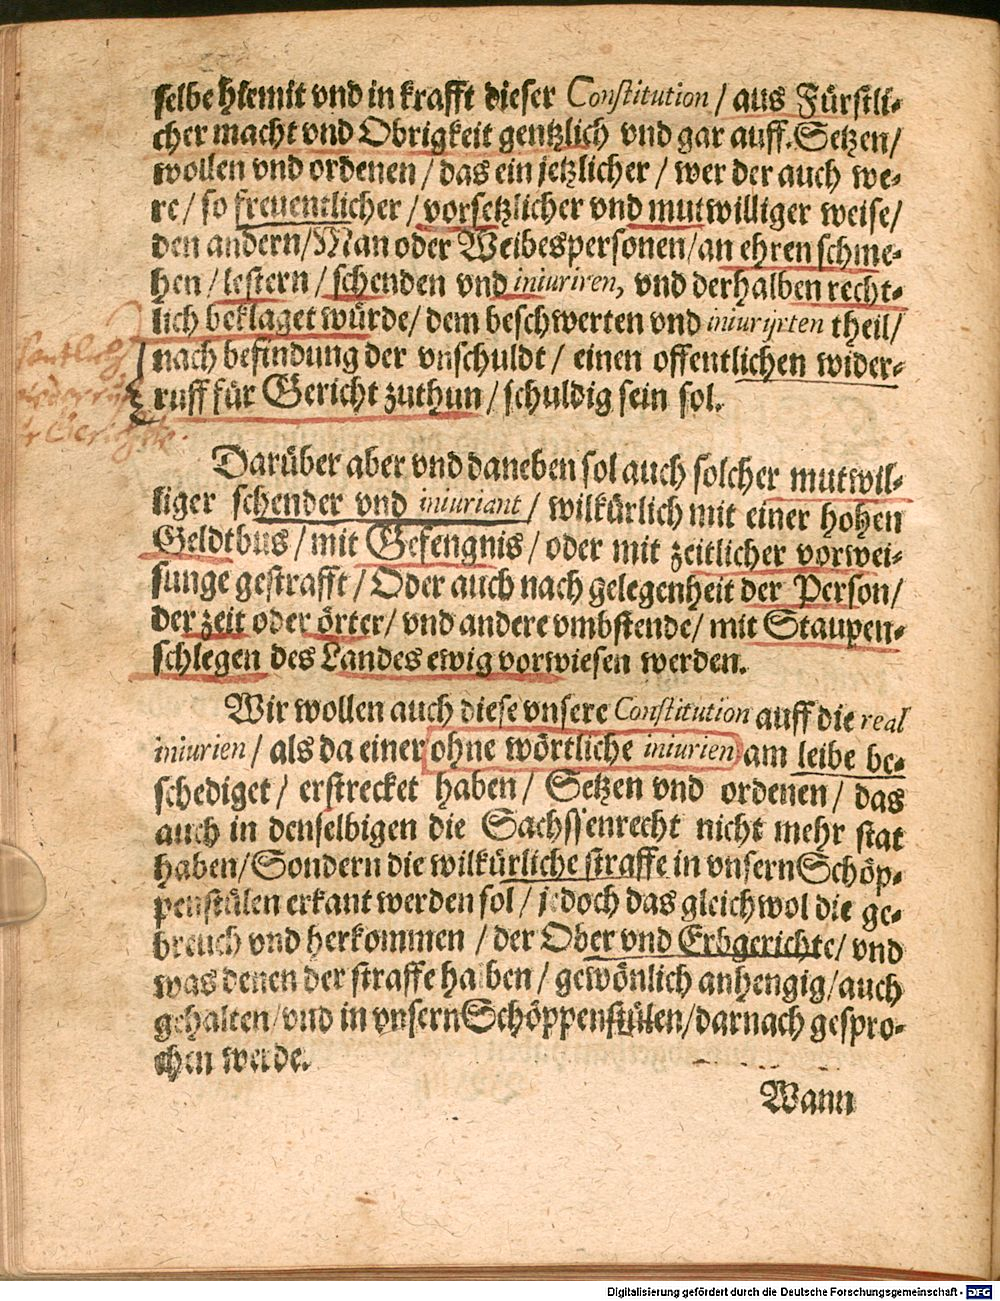 selbe hiemit vnd in krafft dieser Constitution / aus Fürstli-
cher macht vnd Obrigkeit gentzlich vnd gar auff. Setzen /
wollen vnd ordenen / das ein jetzlicher / wer der auch we-
re / so freuentlicher / vorsetzlicher vnd mutwilliger weise /
den andern / Man oder Weibespersonen / an ehren schme-
hen / lestern / schenden vnd iniuriren, vnd derhalben recht-
lich beklaget würde / dem beschwerten vnd iniurijrten theil /
nach befindung der vnschuldt / einen offentlichen wider-
ruff für Gericht zuthun / schuldig sein sol.
Darüber aber vnd daneben sol auch solcher mutwil-
liger schender vnd iniuriant / wilkürlich mit einer hohen
Geldtbus / mit Gefengnis / oder mit zeitlicher vorwei-
sunge gestrafft / Oder auch nach gelegenheit der Person /
der zeit oder örter / vnd andere vmbstende / mit Staupen-
schlegen des Landes ewig vorwiesen werden.
Wir wollen auch diese vnsere Constitution auff die real
iniurien / als da einer ohne wörtliche iniurien am leibe be-
schediget / erstrecket haben / Setzen vnd ordenen / das
auch in denselbigen die Sachssenrecht nicht mehr stat
haben / Sondern die wilkürliche straffe in vnsern Schöp-
penstülen erkant werden sol / jedoch das gleichwol die ge-
breuch vnd herkommen / der Ober vnd Erbgerichte / vnd
was denen der straffe halben / gewönlich anhengig / auch
gehalten / vnd in vnsern Schöppenstülen / darnach gespro-
chen werde.
Wann
Digitalisierung gefördert durch die Deutsche Forschungsgemeinschaft - DFG